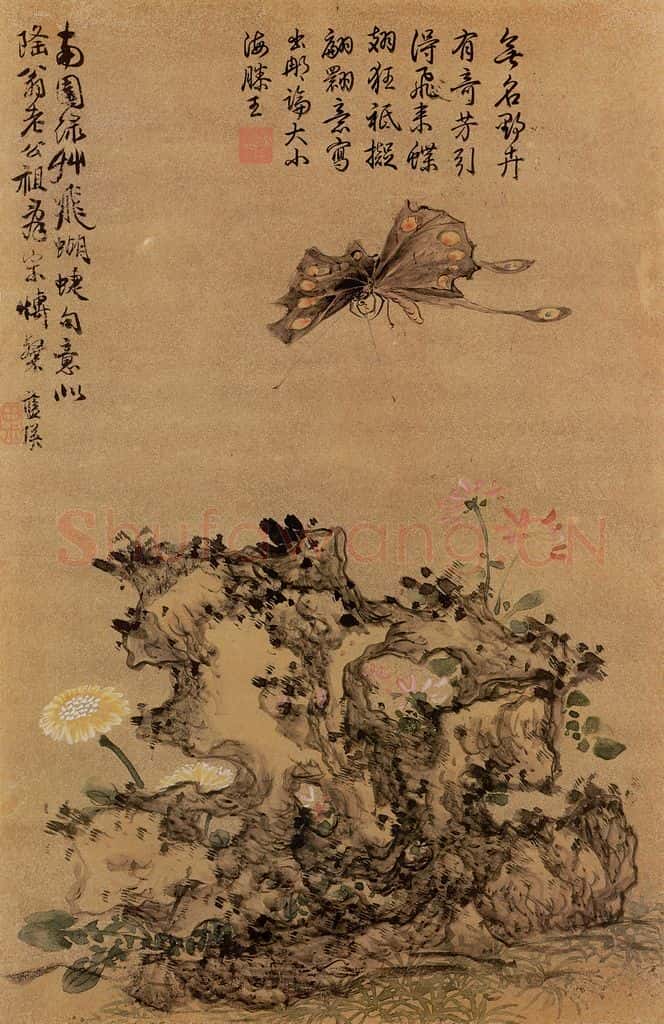 無名野卉
有奇芳引
得飛来蝶
翅狂祗擬
翩翾意寫
出那論大小
海滕王
南園綠艸飛蝴蜨句意似
隆翁老公祖宗博粲 藍瑛
Shufawang.CN